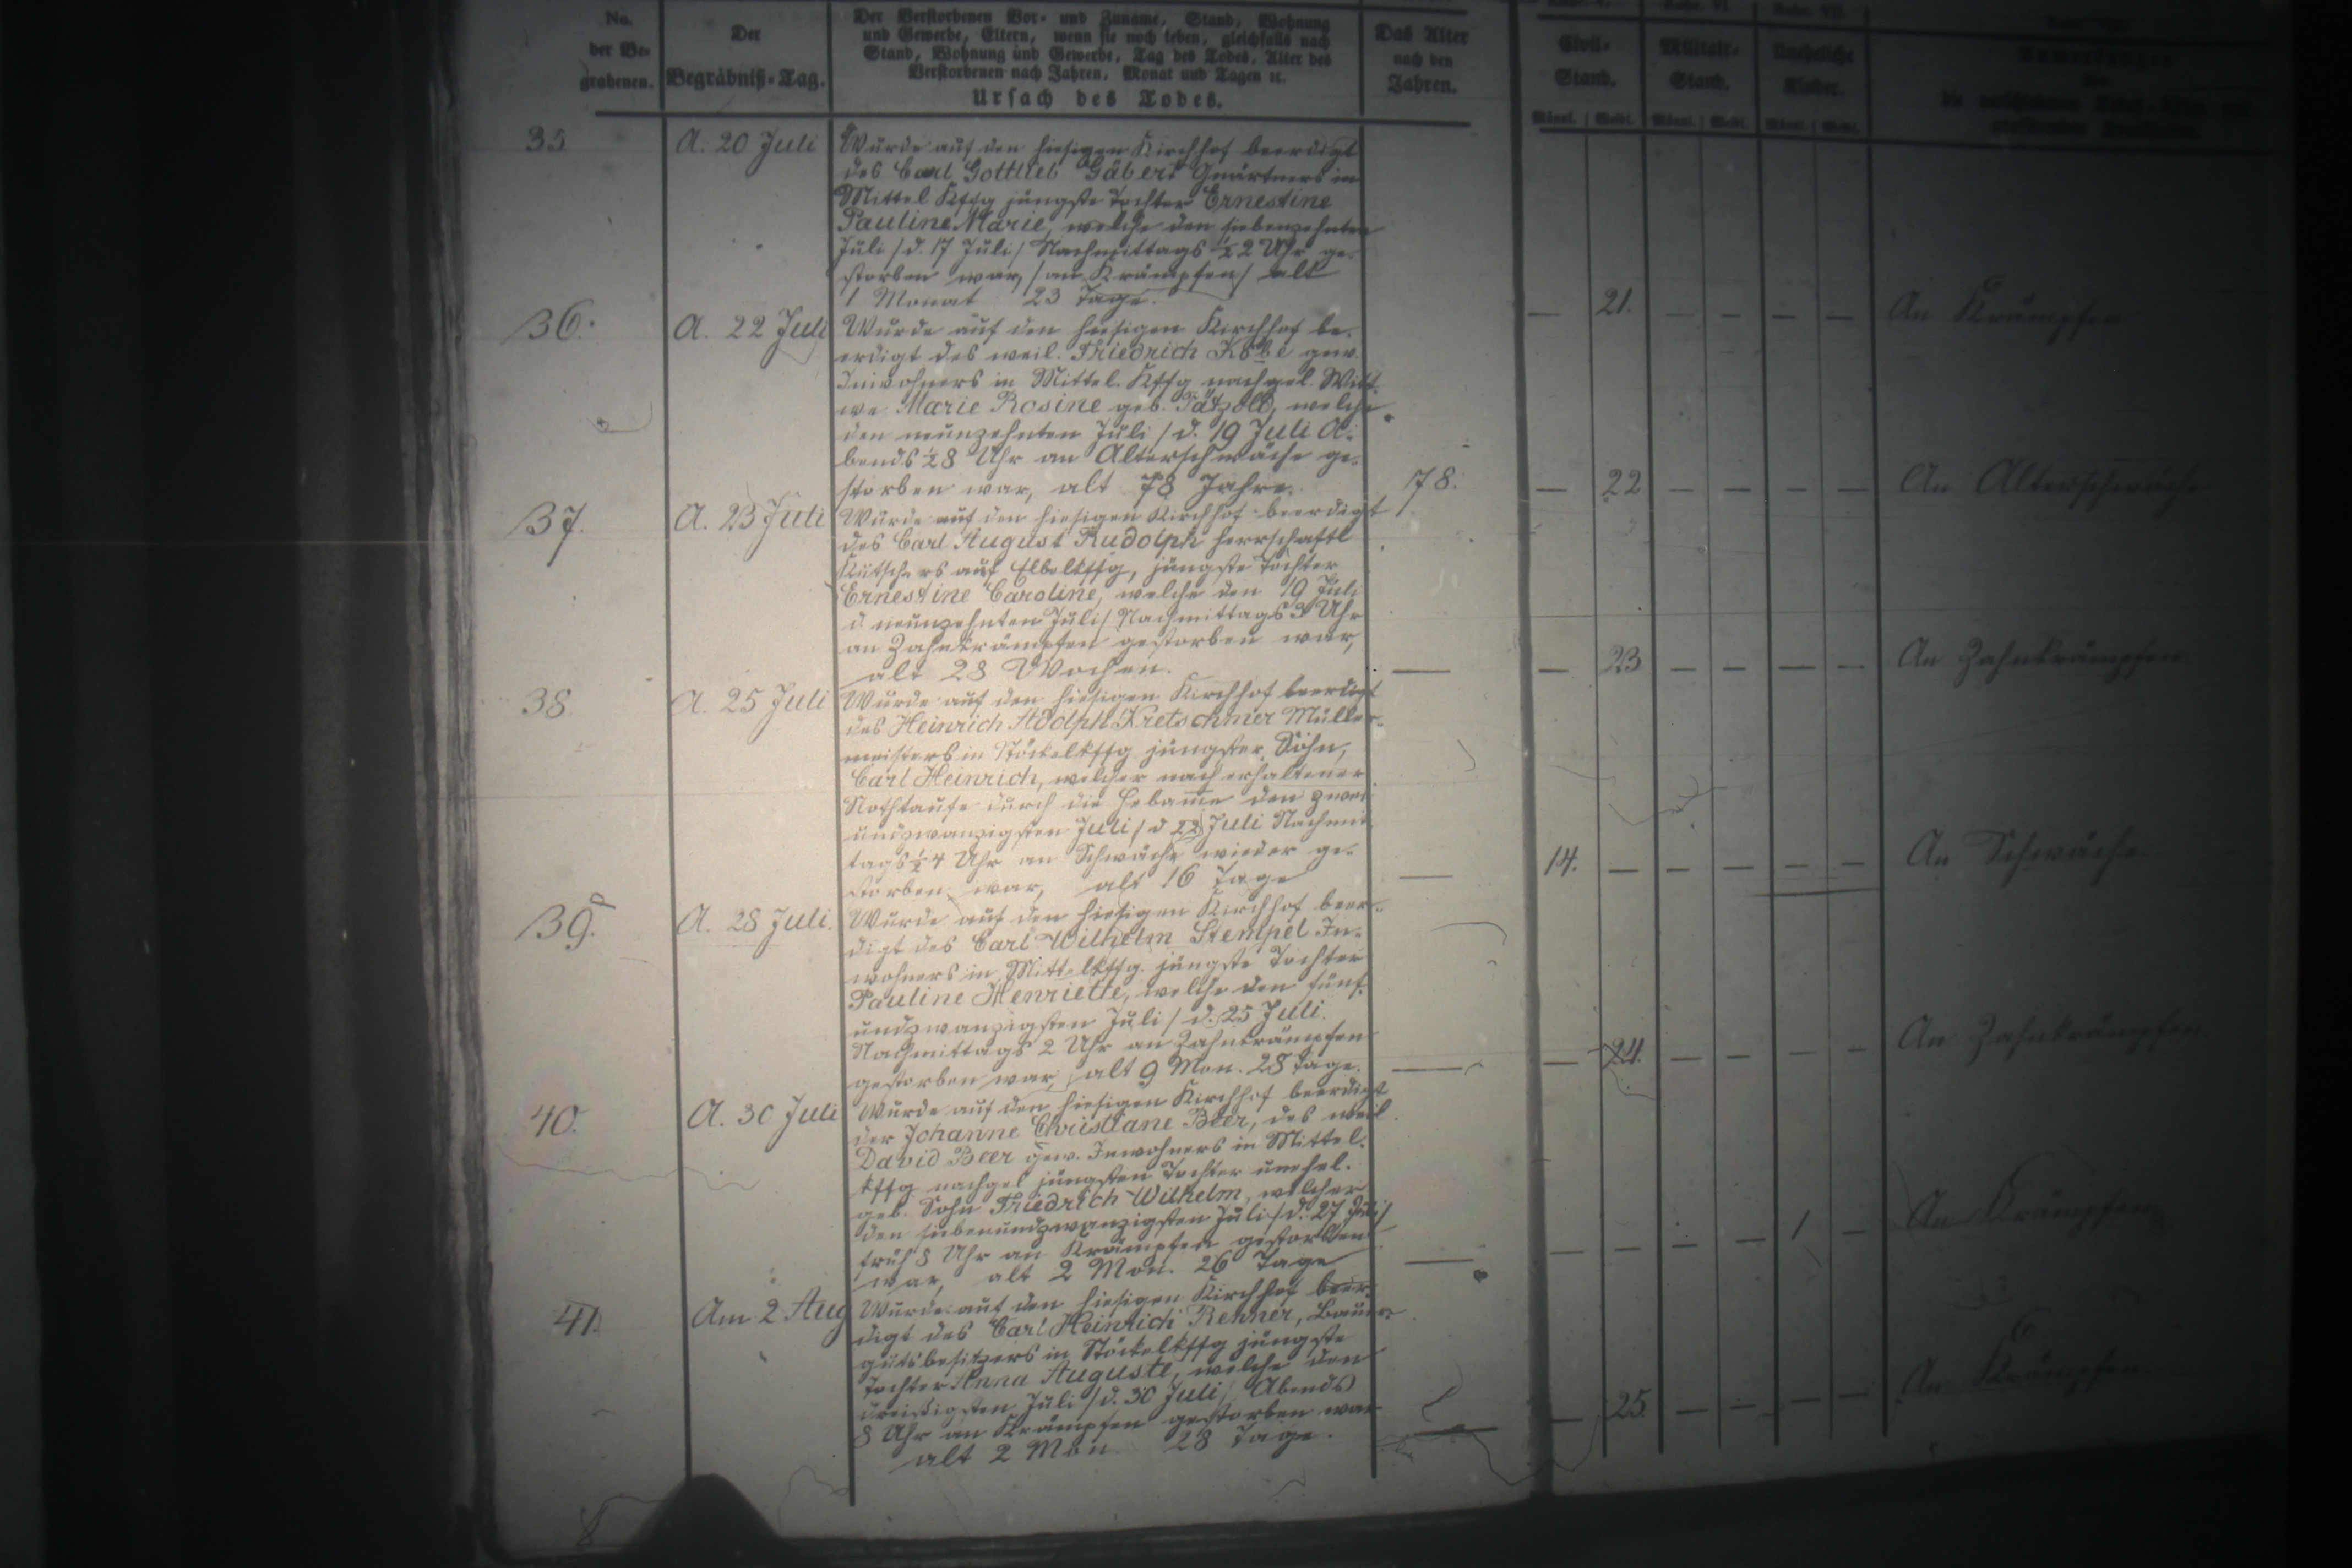 No. der Begrabenen.
Der Begräbniß-Tag.
Der Verstorbenen Vor- und Zuname, Stand, Wohnung
und Gewerbe, Eltern, wenn sie noch leben, gleichfalls nach
Stand, Wohnung und Gewerbe, Tag des Todes, Alter des
Verstorbenen nach Jahren, Monat und Tagen ꝛc.
Ursach des Todes.
Das Alter nach den Jahren.
Civil-Stand.
Militair-Stand.
Uneheliche Kinder.
Männl. Weibl. Männl. Weibl. Männl. Weibl.
35
A. 20 Juli
Wurde auf den hiesigen Kirchhof beerdigt
des Carl Gottlieb Gäbert in
Mittel Kffg jüngste Tochter Ernestine
Pauline Marie, welche den siebenzehnten
Juli /d. 17 Juli/ Nachmittags ½2 Uhr ge-
storben war, /an Krämpfen/ alt
1 Monat 23 Tage.
21.
An Krämpfen
36.
A. 22 Juli
Wurde auf den hiesigen Kirchhof be-
erdigt des weil. Friedrich gew.
Inwohners in Mittel. Kffg nachgel. Witt-
we Marie Rosine geb. Pätzold, welche
den neunzehnten Juli /d. 19 Juli A-
bends ½8 Uhr an Altersschwäche ge-
storben war, alt 78 Jahre.
78.
22
An Altersschwäche
37.
A. 23 Juli
Wurde auf den hiesigen Kirchhof beerdigt
des Carl August Rudolph herrschaftl
Kutschers auf Elbelkffg, jüngste Tochter
Ernestine Caroline, welche den 19 Juli
d. neunzehnten Juli/ Nachmittags 3 Uhr
an Zahnkrämpfen gestorben war,
alt 28 Wochen.
23
An Zahnkrämpfen
38
A. 25 Juli
Wurde auf den hiesigen Kirchhof beerdigt
des Heinrich Adolph Kretschmer Müller-
meisters in Stöckelkffg jüngster Sohn,
Carl Heinrich, welcher nach erhaltener
Nothtaufe durch die Hebamme den zwei
undzwanzigsten Juli /d 22 Juli Nachmit
tags ½4 Uhr an Schwäche wieder ge-
storben war, alt 16 Tage
14.
An Schwäche.
39.
A. 28 Juli.
Wurde auf den hiesigen Kirchhof beer-
digt des Carl Wilhelm Stempel In-
wohners in Mittelkffg. jüngste Tochter
Pauline Henriette, welche den fünf-
undzwanzigsten Juli / d. 25 Juli.
Nachmittags 2 Uhr an Zahnkrämpfen
gestorben war, alt 9 Mon. 28 Tage.
24.
An Zahnkrämpfen
40.
A. 30 Juli
Wurde auf den hiesigen Kirchhof beerdigt
der Johanne Christiane Beer, des weil
David Beer gew. Inwohners in Mittel-
kffg nachgel jüngsten Tochter unehel.
geb. Sohn Friedrich Wilhelm, welcher
den siebenundzwanzigsten Juli /d. 27 Juli/
früh 8 Uhr an Krämpfen gestorben
war, alt 2 Mon. 26 Tage
1
An Krämpfen
41.
Am 2 Aug
Wurde auf den hiesigen Kirchhof beer-
digt des Carl Heinrich Renner, Bauer-
gutsbesitzers in Stöckelkffg jüngste
Tochter Anna Auguste, welche den
dreißigsten Juli /d. 30 Juli/ Abends
8 Uhr an Krämpfen gestorben war
alt 2 Mon. 28 Tage.
25.
An Krämpfen.